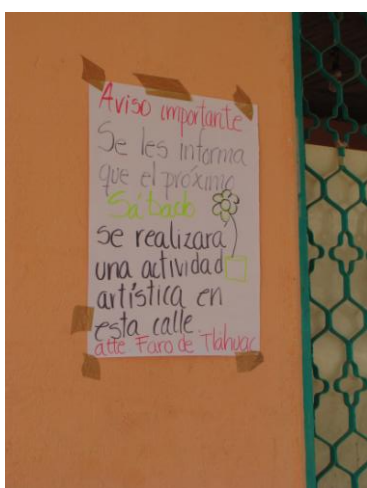 Aviso importante
Se les informa
que el próximo
Sábado
se realizara
una actividad
artística en
esta calle
atte Faro de Tláhuac